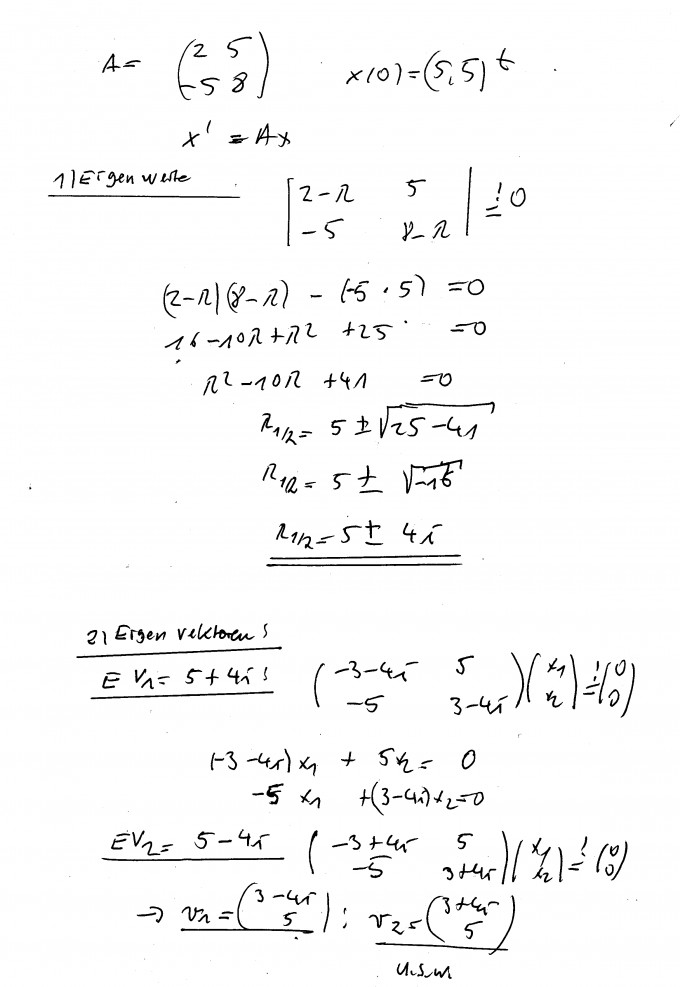 A= (2 5
-5 8) x(0)=(5,5)^t .
x' = Ax
1) Eigenwerte |2-λ 5
-5 8-λ| != 0
(2-λ)(8-λ) - (-5·5) =0
16-10λ+λ² +25 =0
λ²-10λ +41 =0
λ1/2= 5 ± √25-41
λ1/2= 5 ± √-16
λ1/2= 5 ± 4i
2) Eigenvektoren:
EV1= 5+4i: (-3-4i 5
-5 3-4i) (x1
x2) != (0
0)
(-3-4i)x1 + 5x2= 0
-5 x1 +(3-4i)x2=0
EV2= 5-4i (-3+4i 5
-5 3+4i) (x1
x2) != (0
0)
→ v1=(3-4i
5) ; v2=(3+4i
5)
u.s.w